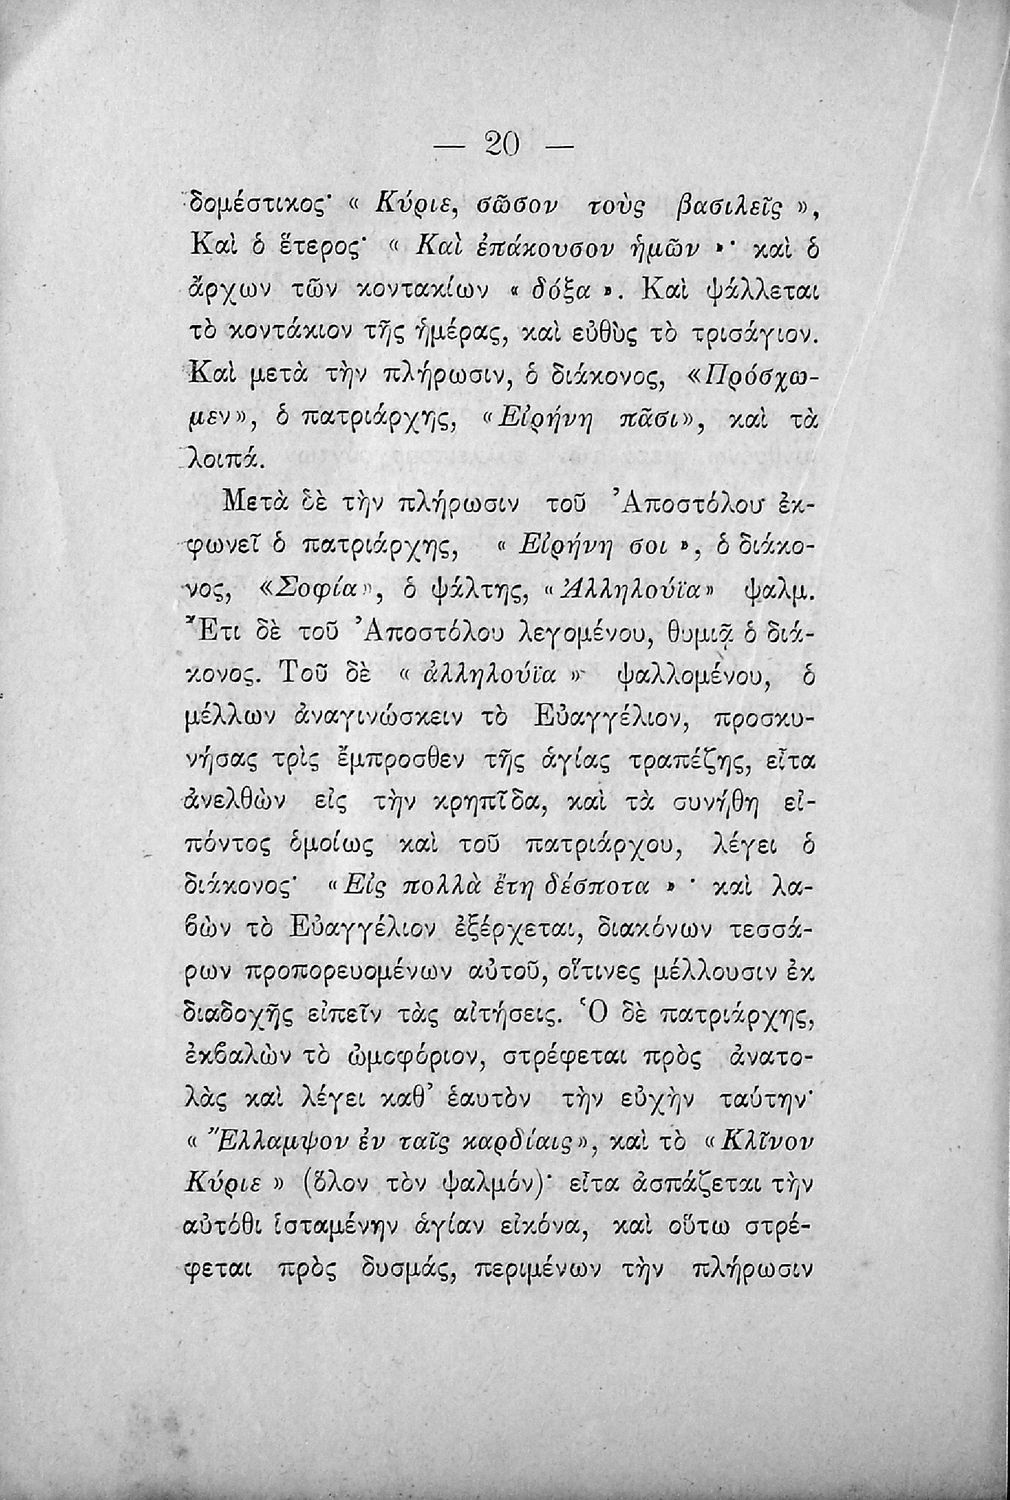 — 20 —
δομέστικος· « Κύριε, σῶσον τοὺς βασιλεῖς »,
Καὶ ὁ ἕτερος· « Καὶ ἐπάκουσον ἡμῶν »· καὶ ὁ
ἄρχων τῶν κοντακίων « δόξα ». Καὶ ψάλλεται
τὸ κοντάκιον τῆς ἡμέρας, καὶ εὐθὺς τὸ τρισάγιον.
Καὶ μετὰ τὴν πλήρωσιν, ὁ διάκονος, «Πρόσχω-
μεν», ὁ πατριάρχης, «Εἰρήνη πᾶσι», καὶ τὰ
λοιπά.
Μετὰ δὲ τὴν πλήρωσιν τοῦ Ἀποστόλου ἐκ-
φωνεῖ ὁ πατριάρχης, « Εἰρήνη σοι », ὁ διάκο-
νος, «Σοφία», ὁ ψάλτης, «Ἀλληλούϊα» ψαλμ.
Ἔτι δὲ τοῦ Ἀποστόλου λεγομένου, θυμιᾷ ὁ διά-
κονος. Τοῦ δὲ « ἀλληλούϊα » ψαλλομένου, ὁ
μέλλων ἀναγινώσκειν τὸ Εὐαγγέλιον, προσκυ-
νήσας τρὶς ἔμπροσθεν τῆς ἁγίας τραπέζης, εἶτα
ἀνελθὼν εἰς τὴν κρηπῖδα, καὶ τὰ συνήθη εἰ-
πόντος ὁμοίως καὶ τοῦ πατριάρχου, λέγει ὁ
διάκονος· «Εἰς πολλὰ ἔτη δέσποτα » · καὶ λα-
βὼν τὸ Εὐαγγέλιον ἐξέρχεται, διακόνων τεσσά-
ρων προπορευομένων αὐτοῦ, οἵτινες μέλλουσιν ἐκ
διαδοχῆς εἰπεῖν τὰς αἰτήσεις. Ὁ δὲ πατριάρχης,
ἐκβαλὼν τὸ ὠμοφόριον, στρέφεται πρὸς ἀνατο-
λὰς καὶ λέγει καθ’ ἑαυτὸν τὴν εὐχὴν ταύτην·
« Ἔλλαμψον ἐν ταῖς καρδίαις», καὶ τὸ «Κλῖνον
Κύριε » (ὅλον τὸν ψαλμόν)· εἶτα ἀσπάζεται τὴν
αὐτόθι ἱσταμένην ἁγίαν εἰκόνα, καὶ οὕτω στρέ-
φεται πρὸς δυσμάς, περιμένων τὴν πλήρωσιν